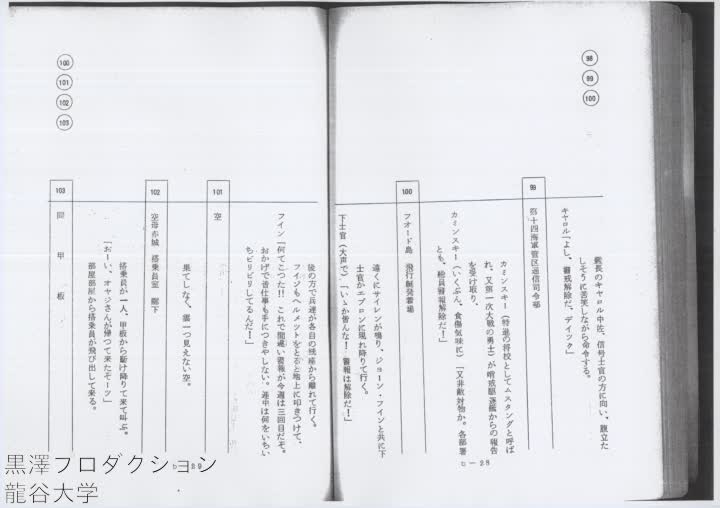 98
99
100
艦長のキヤロル中佐、信号士官の方に向い、腹立た
しそうに苦笑しながら命令する。
キヤロル「よし、警戒解除だ、デイツク」
99
第十四海軍管区通信司令部
カミンスキー（特進の将校としてムスタングと呼ば
れ、又第一次大戦の勇士）が哨戒駆逐艦からの報告
を受け取り、
カミンスキー（いくぶん、食傷気味に）「又非敵対物か。各部署
とも、総員警報解除だ！」
100
フオード島 飛行艇発着場
遠くにサイレンが鳴り、ジョーン・フインと共に下
士官がエプロンに現れ降りて行く。
下士官（大声で）「いいか皆んな！ 警報は解除だ！」
b—28
100
101
102
103
後の方で兵達が各自の残座から離れて行く。
フインもヘルメツトをとると地上に叩きつけて、
フイン「何てこつた!! これで間違い警報が今週は三回目だぞ。
おかげで皆仕事も手につきやしない。連中は何をいちい
ちビリビリしてるんだ！」
101
空
果てしなく、雲一つ見えない空。
102
空母赤城 搭乗員室 廊下
搭乗員が一人、甲板から駆け降りて来て叫ぶ。
「おーい、オヤジさんが帰つて来たぞーツ」
部屋部屋から搭乗員が飛び出して来る。
103
同 甲 板
b—29
黒澤プロダクション
龍谷大学